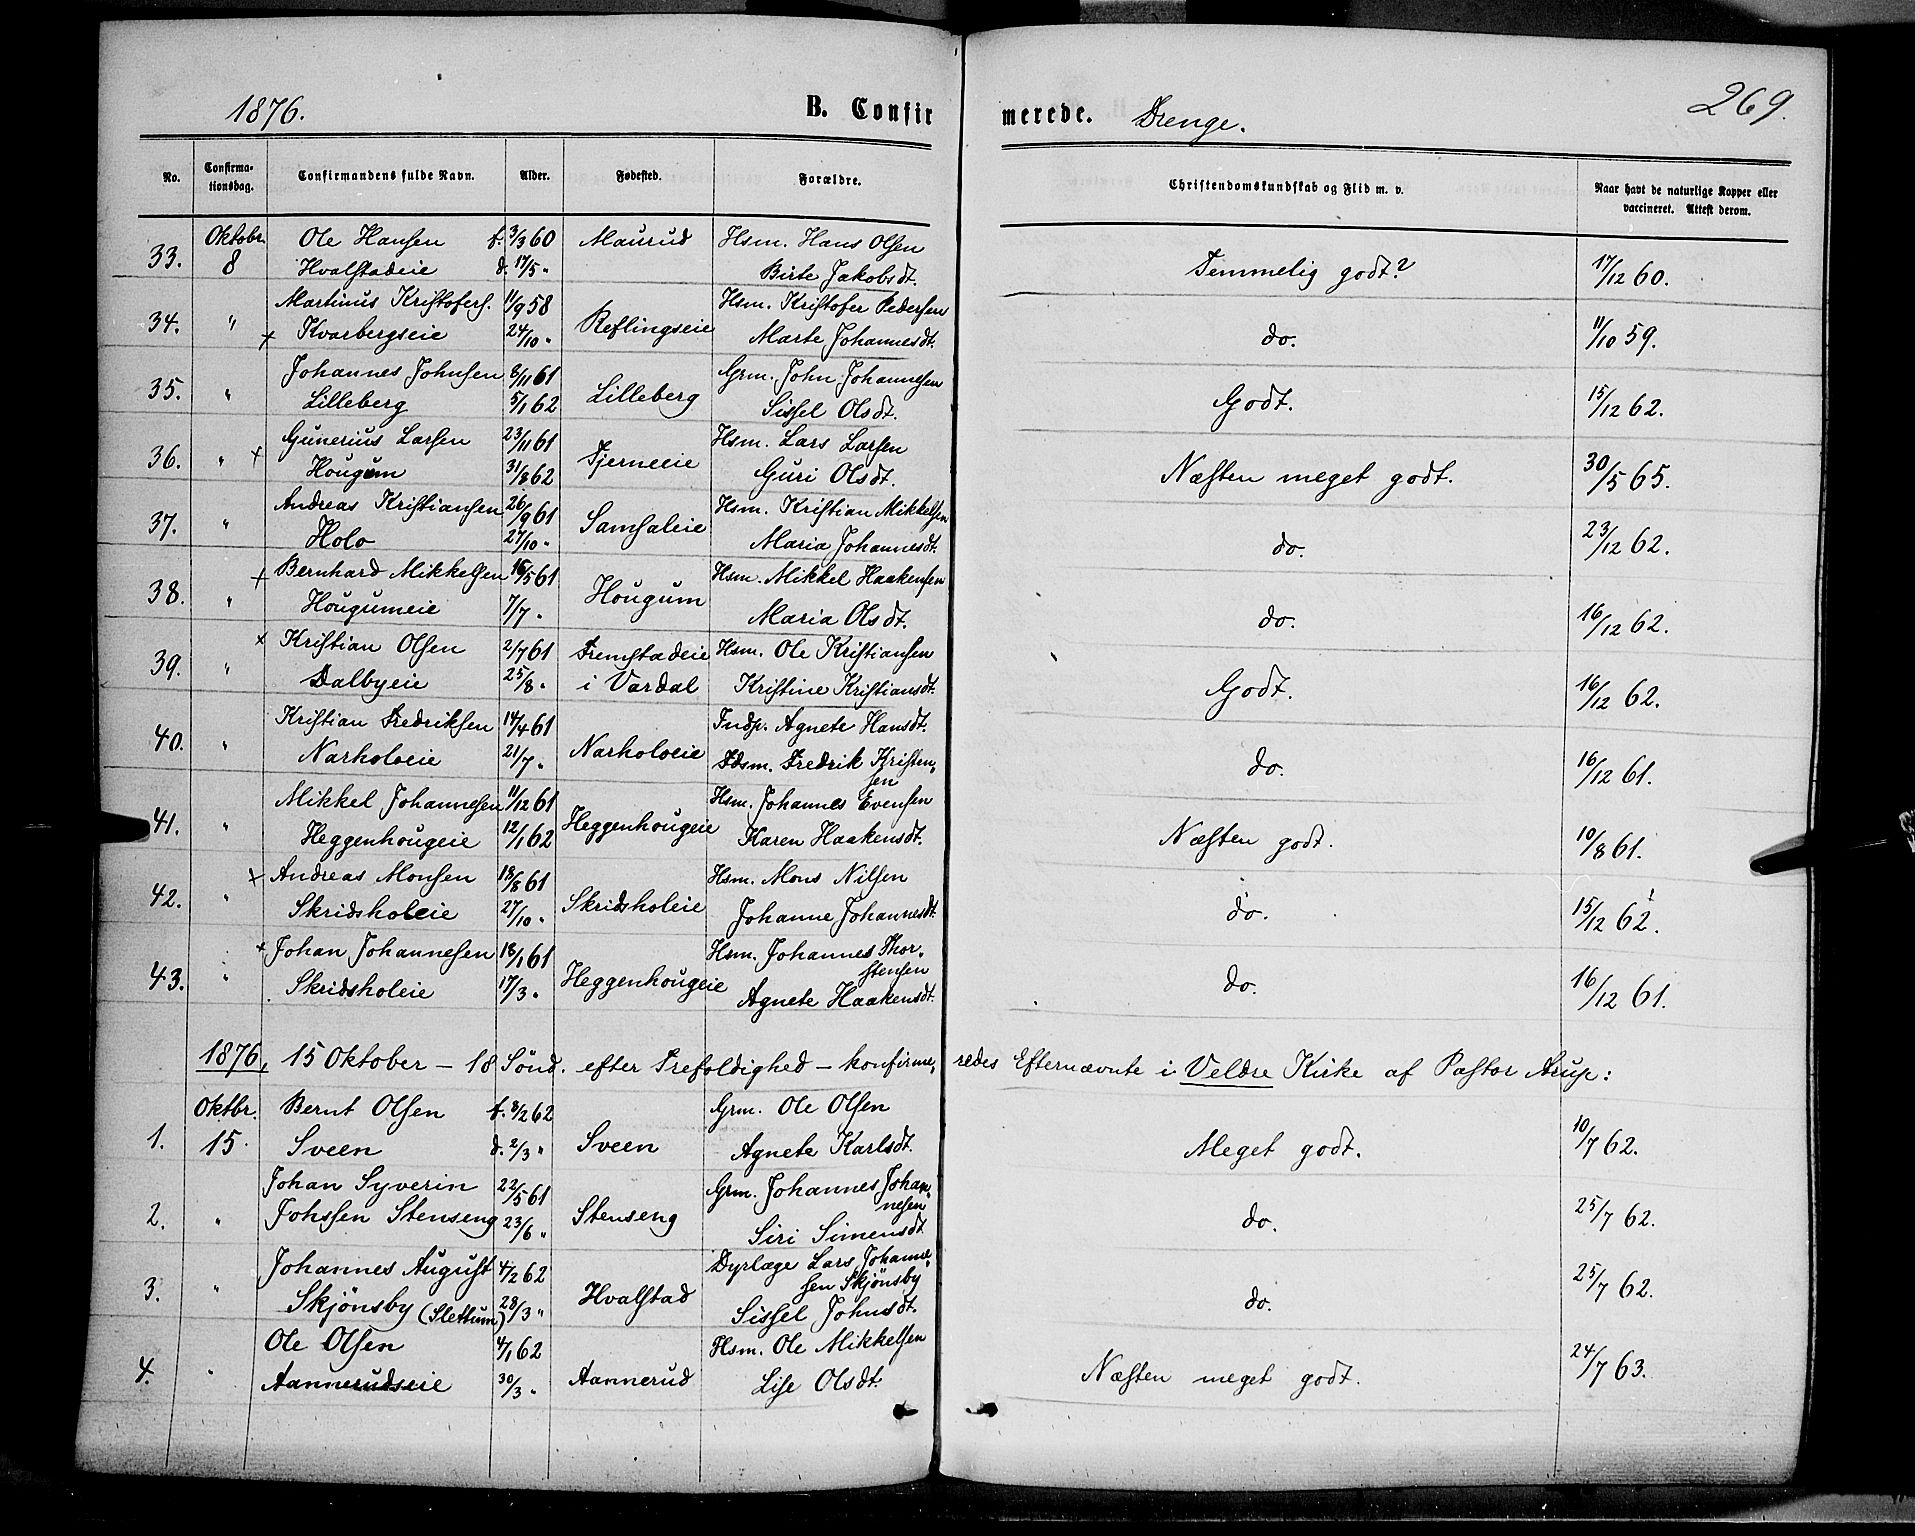 1876.
B. Confirmerede. Drenge.
269.
No. Confirmationsdag. Confirmandens fulde Navn. Alder. Fødested. Forældre. Christendomskundskab og Flid m. v. Naar havt de naturlige Kopper eller vaccineret. Attest derom.
33. Oktobr. 8 Ole Hansen f. 3/3 60 Maurud Hsm. Hans Olsen Temmelig godt? 17/12 60.
Hvalstadeie d. 17/5 " Birte Jakobsdt.
34. " Martinus Kristofers. 11/9 58 Reflingseie Hsm. Kristofer Pedersen do. 11/10 59.
x Kvarbergseie 24/10 " Marte Johannesdt.
35. " Johannes Johnsen 8/11 61 Lilleberg Grm. John Johannesen Godt. 15/12 62.
Lilleberg 5/1 62 Sissel Olsdt.
36. " x Gunerius Larsen 23/11 61 Tjerneeie Hsm. Lars Larsen Næsten meget godt. 30/5 65.
Hougum 31/8 62 Guri Olsdt.
37. " Andreas Kristiansen 26/9 61 Samsaleie Hsm. Kristian Mikkelsen do. 23/12 62.
Holo 27/10 " Maria Johannesdt.
38. " x Bernhard Mikkelsen 16/5 61 Hougum Hsm. Mikkel Haakensen do. 16/12 62.
Hougumeie 7/7 " Maria Olsdt.
39. " x Kristian Olsen 2/7 61 Fremstadeie Hsm. Ole Kristiansen Godt. 16/12 62.
Dalbyeie 25/8 " i Vardal Kristine Kristiansdt.
40. " Kristian Fredriksen 14/4 61 Narholoeie Indp. Agnete Hansdt. do. 16/12 61.
Narholoeie 21/7 " Fredrik Kristensen
41. " Mikkel Johannesen 11/12 61 Heggenhougeie Hsm. Johannes Evensen Næsten godt. 10/8 61.
Heggenhougeie 12/1 62 Karen Haakensdt.
42. " x Andreas Monsen 18/8 61 Skridsholeie Hsm. Mons Nilsen do. 15/12 62.
Skridsholeie 27/10 " Johanne Johannesdt.
43. " x Johan Johannesen 18/1 61 Heggenhougeie Hsm. Johannes Thorstensen do. 16/12 61.
Skridsholeie 17/3 " Agnete Haakensdt.
1876, 15 Oktober – 18 Sönd. efter Trefoldighed – konfirmeredes Efternævnte i Veldre Kirke af Pastor Arup:
1. Oktbr. 15. Bernt Olsen f. 8/2 62 Sveen Grm. Ole Olsen Meget godt. 10/7 62.
Sveen d. 2/3 " Agnete Karlsdt.
2. " Johan Syverin 22/5 61 Stenseng Grm. Johannes Johannesen do. 25/7 62.
Johssen Stenseng 23/6 " Siri Simensdt.
3. " Johannes August 4/2 62 Hvalstad Dyrlæge Lars Johannesen Skjönsby do. 25/7 62.
Skjönsby (Slettum) 28/3 " Sissel Johnsdt.
4. " Ole Olsen 4/1 62 Aannerud Hsm. Ole Mikkelsen Næsten meget godt. 24/7 63.
Aannerudseie 30/3 " Lise Olsdt.